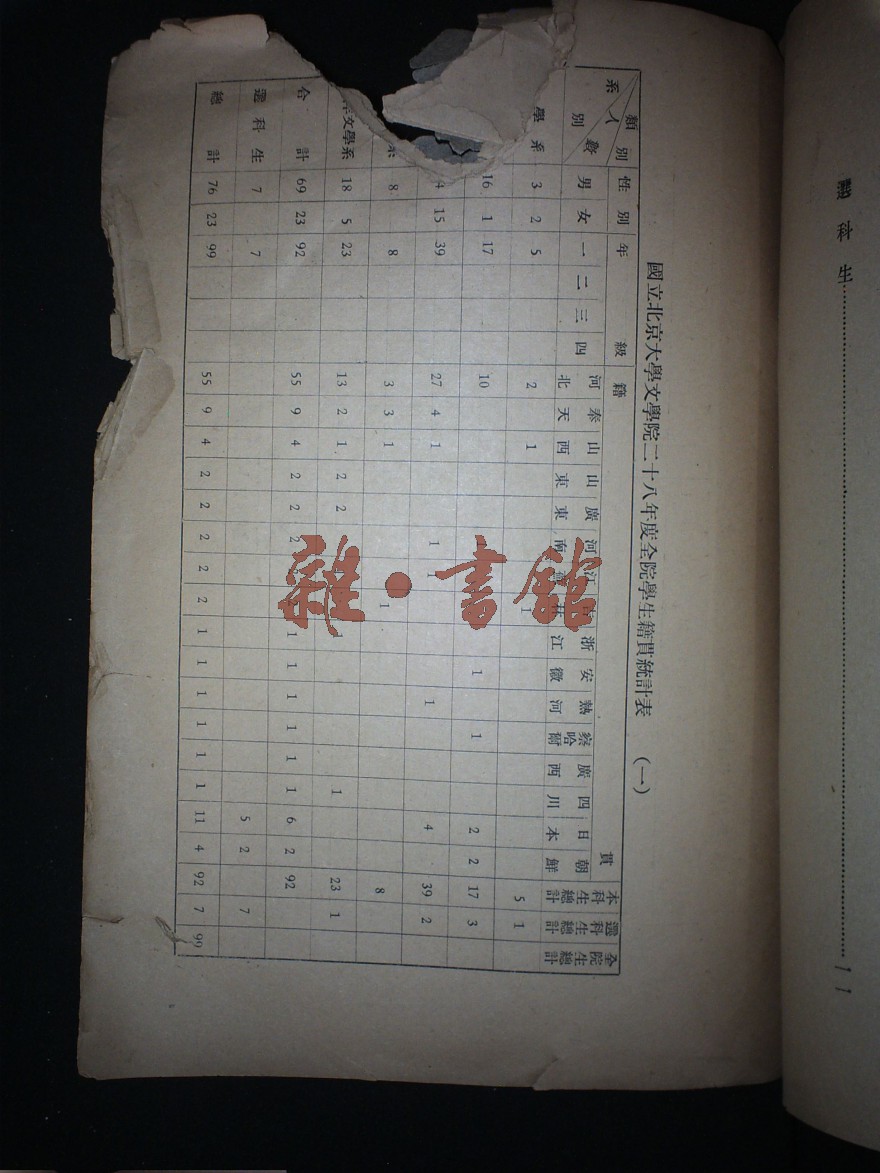 選科生……11
國立北京大學文學院二十八年度全院學生籍貫統計表 (一)
類別 人數 系別 性別 年級 籍貫 本科生總計 選科生總計 全院生總計
男 女 一 二 三 四 河北 奉天 山西 山東 廣東 河南 江 吉林 浙江 安徽 熱河 察哈爾 廣西 四川 日本 朝鮮
學系 3 2 5 2 1 1 5 1
16 1 17 10 1 1 2 2 17 3
4 15 39 27 4 1 1 1 1 4 39 2
系 8 8 3 3 1 1 8
文學系 18 5 23 13 2 1 2 2 1 1 23 1
合計 69 23 92 55 9 4 2 2 2 1 1 1 1 1 1 6 2 92
選科生 7 7 5 2 7
總計 76 23 99 55 9 4 2 2 2 2 2 1 1 1 1 1 1 11 4 92 7 99
雜·書館